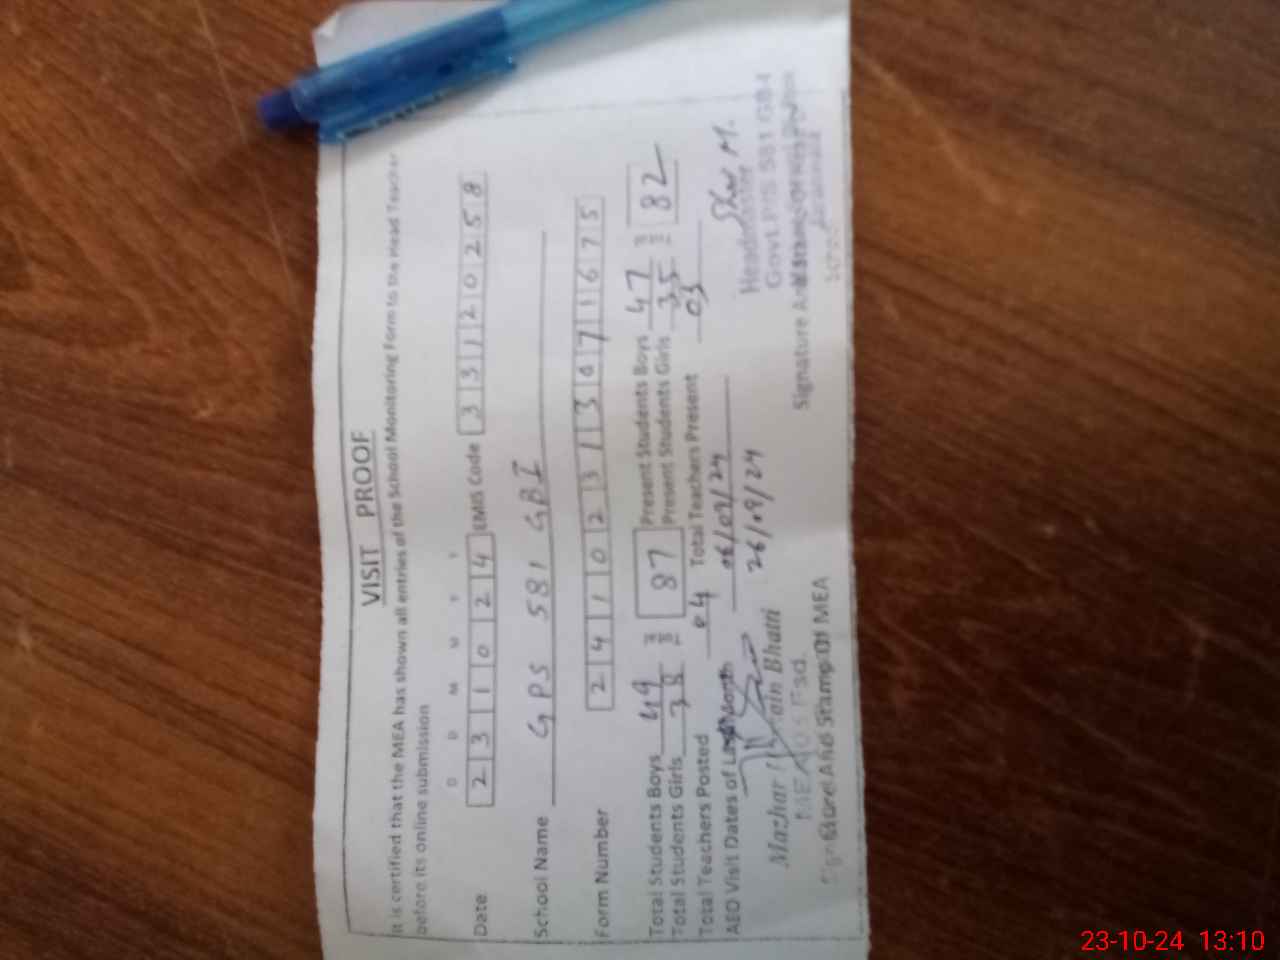 VISIT PROOF
It is certified that the MEA has shown all entries of the School Monitoring Form to the Head Teacher
before its online submission
D D M M Y Y
Date 2 3 1 0 2 4 EMIS Code 3 3 1 2 0 2 5 8
School Name GPS 581 GBI
Form Number 2 4 1 1 0 2 3 1 3 6 7 1 6 7 5
Total Students Boys 49 87 Present Students Boys 47 82
Total Students Girls 38 Present Students Girls 35
Total Teachers Posted 04 Total Teachers Present 03
AEO Visit Dates of Last Month 06/09/24
26/09/24
Mazhar Bhatti
Headmaster
Govt. P/S 581 GB-I
Signature And Stamp Of MEA
Signature
23-10-24 13:10